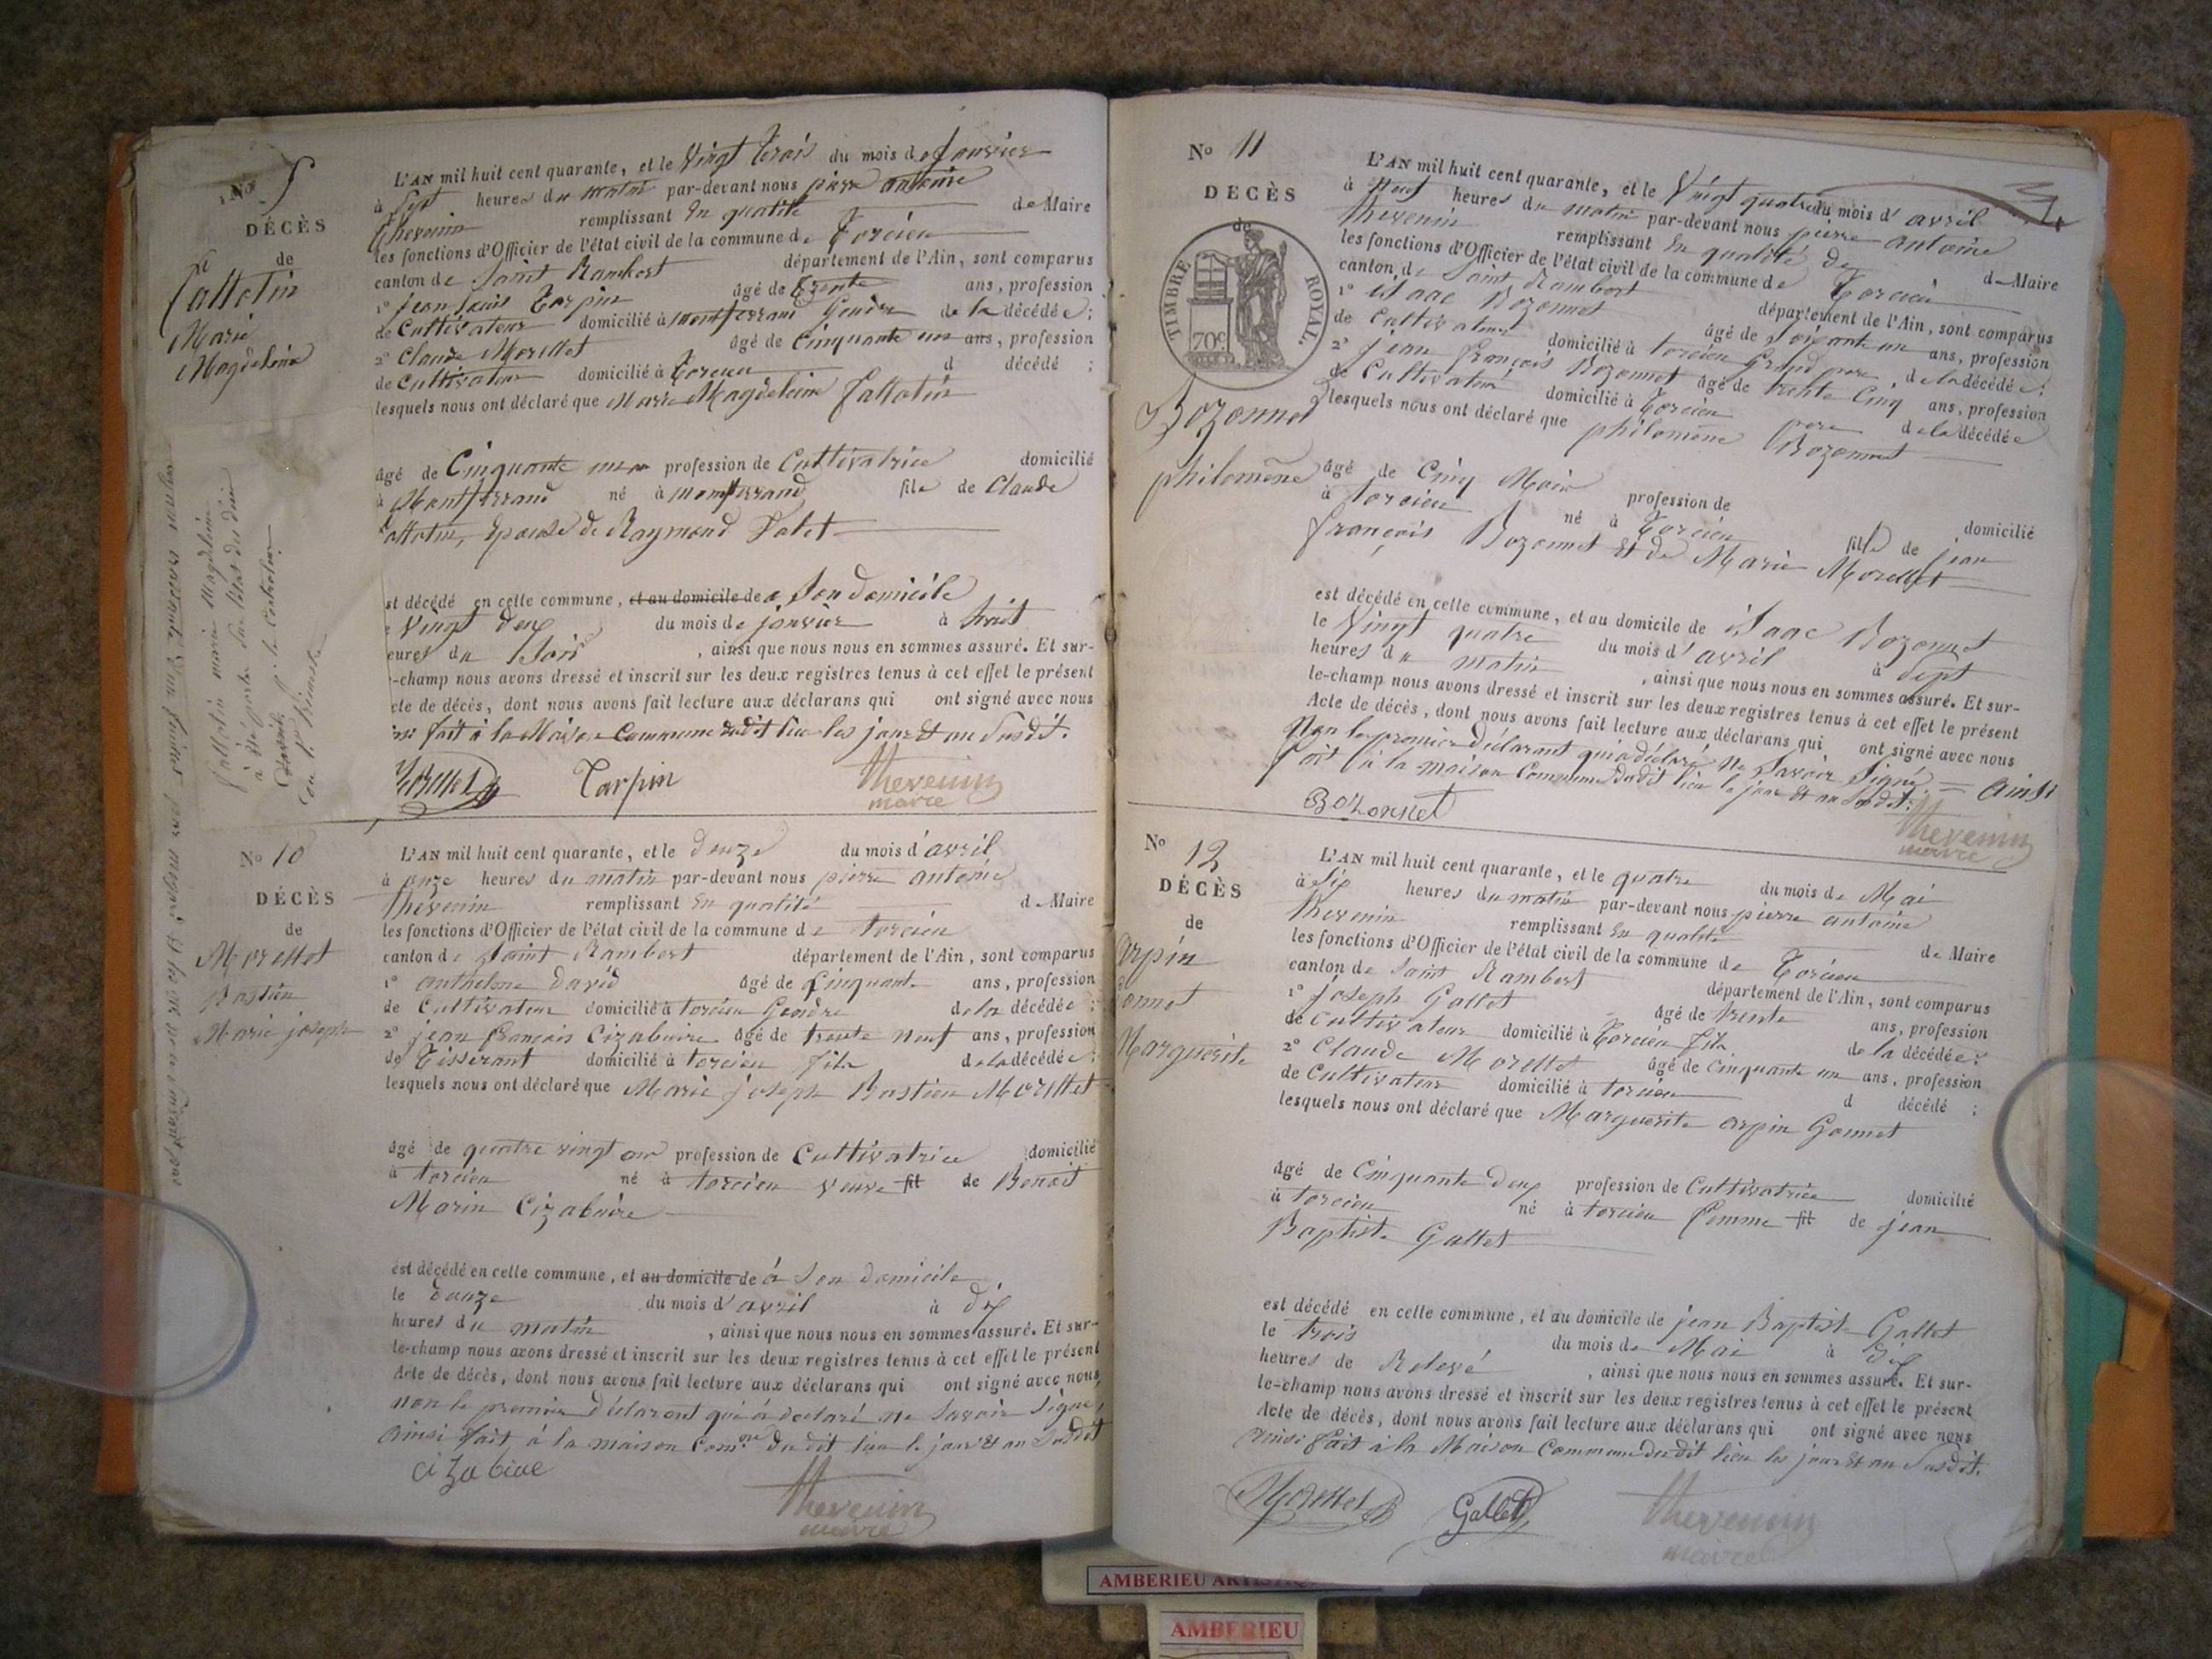 No 5
DÉCÈS
de
fallotin
Marie
Magdeleine
L'AN mil huit cent quarante, et le Vingt trois du mois de Janvier
à Sept heures du matin par-devant nous pierre antoine
thevenin remplissant En qualité de Maire
les fonctions d'Officier de l'état civil de la commune de Torcieu
canton de Saint Rambert département de l'Ain, sont comparus
1° Jean Louis Tarpin âgé de trente ans, profession
de Cultivateur domicilié à montferrand Gendre de la décédée;
2° Claude Morellet âgé de Cinquante un ans, profession
de Cultivateur domicilié à Torcieu d décédé ;
lesquels nous ont déclaré que Marie Magdeleine fallotin
âgé de Cinquante profession de Cultivatrice domicilié
à Montferrand né à montferrand fille de Claude
fallotin, Epouse de Raymond
est décédé en celle commune, et au domicile de a Son domicile
le vingt deux du mois de janvier à huit
heures du Soir , ainsi que nous nous en sommes assuré. Et sur-
le-champ nous avons dressé et inscrit sur les deux registres tenus à cet effet le présent
acte de décès, dont nous avons fait lecture aux déclarans qui ont signé avec nous
ainsi fait à la Maison Commune dudit lieu les jour et an Susdit.
Morellet Tarpin thevenin
maire
fallotin marie magdeleine
No 10
DÉCÈS
de
Morellet
Bastien
Marie joseph
L'AN mil huit cent quarante, et le douze du mois d'avril
à onze heures du matin par-devant nous pierre antoine
thevenin remplissant En qualité de Maire
les fonctions d'Officier de l'état civil de la commune de torcieu
canton de Saint Rambert département de l'Ain, sont comparus
1° anthelme david âgé de Cinquante ans, profession
de Cultivateur domicilié à torcieu Gendre de la décédée ;
2° jean françois Cizabuire âgé de trente neuf ans, profession
de Tisserant domicilié à torcieu fils de la décédée ;
lesquels nous ont déclaré que Marie joseph Bastien Morellet
âgé de quatre vingt an profession de Cultivatrice domicilié
à torcieu né à torcieu veuve fil de Benoit
Marin Cizabuire
est décédé en celle commune, et au domicile de à Son domicile
le douze du mois d'avril à dix
heures du matin , ainsi que nous nous en sommes assuré. Et sur-
le-champ nous avons dressé et inscrit sur les deux registres tenus à cet effet le présent
Acte de décès, dont nous avons fait lecture aux déclarans qui ont signé avec nous,
non le premier déclarant qui a declaré ne Savoir Signer,
ainsi fait, à la maison Com.ne dudit lieu le jour et an Susdit
thevenin
maire
No 11
DECÈS
de
TIMBRE ROYAL.
70c
Bozonnet
philomène
L'AN mil huit cent quarante, et le Vingt quatre du mois d'avril
à Neuf heures du matin par-devant nous pierre antoine
thevenin remplissant En qualité de de Maire
les fonctions d'Officier de l'état civil de la commune de Torcieu
canton de Saint Rambert département de l'Ain, sont comparus
1° isaac Bozonnet âgé de Soixante un ans, profession
de Cultivateur domicilié à torcieu Grand pere, de la décédée;
2° jean françois Bozonnet âgé de trente Cinq ans, profession
de Cultivateur domicilié à Torcieu pere de la décédée
lesquels nous ont déclaré que philomène Bozonnet
âgé de Cinq Mois profession de
à torcieu né à Torcieu domicilié
fille de jean
françois Bozonnet et de Marie Morellet
est décédé en celle commune, et au domicile de isaac Bozonnet
le Vingt quatre du mois d'avril à Sept
heures du matin , ainsi que nous nous en sommes assuré. Et sur-
le-champ nous avons dressé et inscrit sur les deux registres tenus à cet effet le présent
Acte de décès, dont nous avons fait lecture aux déclarans qui ont signé avec nous
Non le premier déclarant qui a déclaré ne Savoir Signé. = ainsi
fait à la maison Commune dudit lieu le jour et an Susdit.
Bozonnet thevenin
maire
No 12
DÉCÈS
de
arpin
Gonnet
Marguerite
L'AN mil huit cent quarante, et le quatre du mois de Mai
à Six heures du matin par-devant nous pierre antoine
thevenin remplissant En qualité de Maire
les fonctions d'Officier de l'état civil de la commune de Torcieu
canton de Saint Rambert département de l'Ain, sont comparus
1° joseph Gallet âgé de trente ans, profession
de Cultivateur domicilié à Torcieu fils de la décédée;
2° Claude Morellet âgé de Cinquante un ans, profession
de Cultivateur domicilié à torcieu d décédé ;
lesquels nous ont déclaré que Marguerite arpin Gonnet
âgé de Cinquante deux profession de Cultivatrice domicilié
à torcieu né à torcieu femme fil de jean
Baptiste Gallet
est décédé en celle commune, et au domicile de jean Baptiste Gallet
le trois du mois de Mai à dix
heures de Relevé , ainsi que nous nous en sommes assuré. Et sur-
le-champ nous avons dressé et inscrit sur les deux registres tenus à cet effet le présent
Acte de décès, dont nous avons fait lecture aux déclarans qui ont signé avec nous
ainsi fait à la Maison Commune dudit lieu les jour et an Susdit.
Morellet Gallet thevenin
maire
AMBERIEU
AMBERIEU